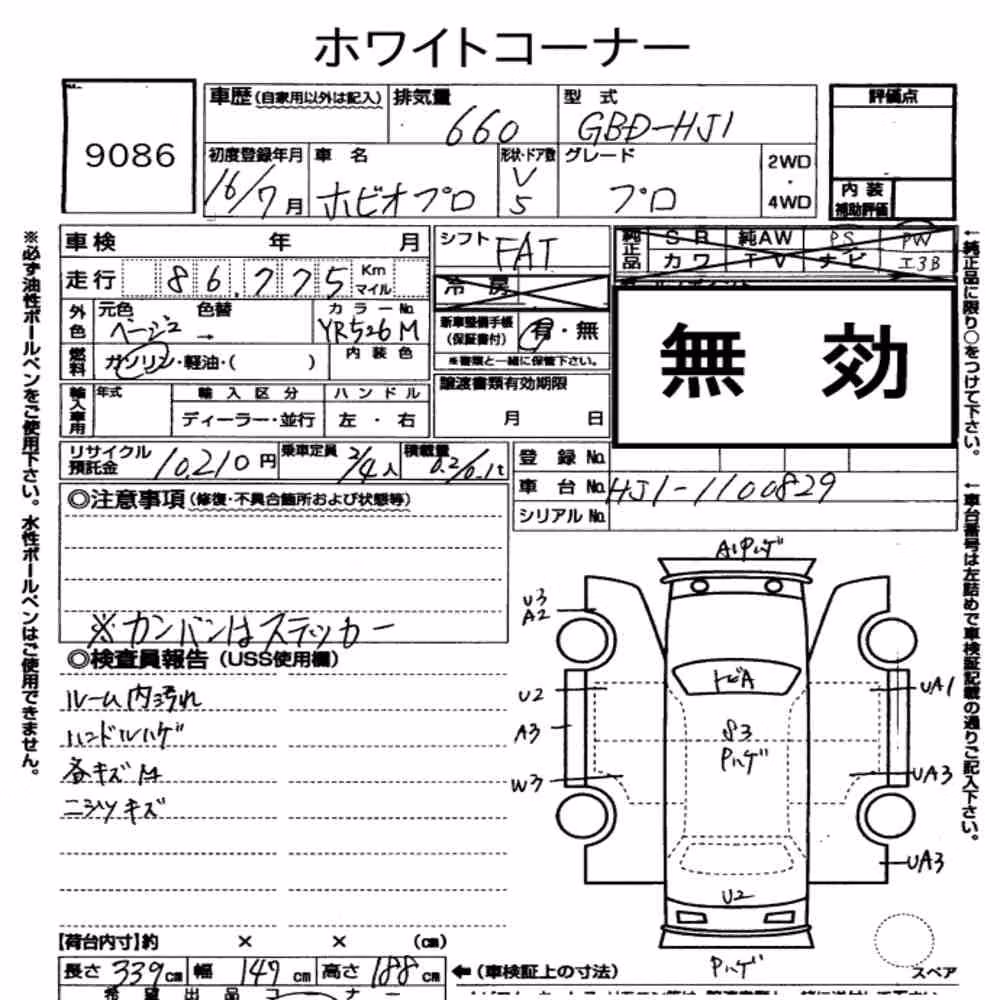 ホワイトコーナー
No.
9086
車歴(自家用以外は記入)
排気量
660
型式
GBD-HJ1
初度登録年月
16/7月
車名
ホビオプロ
形状・ドア数
V
5
グレード
プロ
2WD
・
4WD
評価点
内装
補助評価
※必ず油性ボールペンをご使用下さい。水性ボールペンはご使用できません。
車検 年 月
走行 86.775 Km マイル
外色
元色
ベージュ
色替
→
カラーNo.
YR526M
燃料
ガソリン・軽油・( )
内装色
輸入車用
年式
輸入区分
ディーラー・並行
ハンドル
左・右
シフト
FAT
冷房
新車整備手帳
(保証書付)
有・無
※書類と一緒に保管下さい。
譲渡書類有効期限
月 日
純正品
SR 純AW PS PW
カワ TV ナビ エアB
無効
←純正品に限り○をつけて下さい。
リサイクル
預託金
10,210円
乗車定員
2/4人
積載量
0.2/0.1t
登録No.
車台No.
HJ1-1100829
シリアルNo.
←車台番号は左詰めで車検証記載の通りご記入下さい。
◎注意事項(修復・不具合箇所および状態等)
※カンバンはステッカー
◎検査員報告(USS使用欄)
ルーム内汚れ
ハンドルハゲ
各キズM
ニジツキズ
A1Pハゲ
U3
A2
U2
A3
W3
トビA
S3
Pハゲ
UA1
UA3
UA3
U2
Pハゲ
スペア
【荷台内寸】約 × × (cm)
長さ 339cm 幅 147cm 高さ 188cm
←(車検証上の寸法)
希望出品コーナー